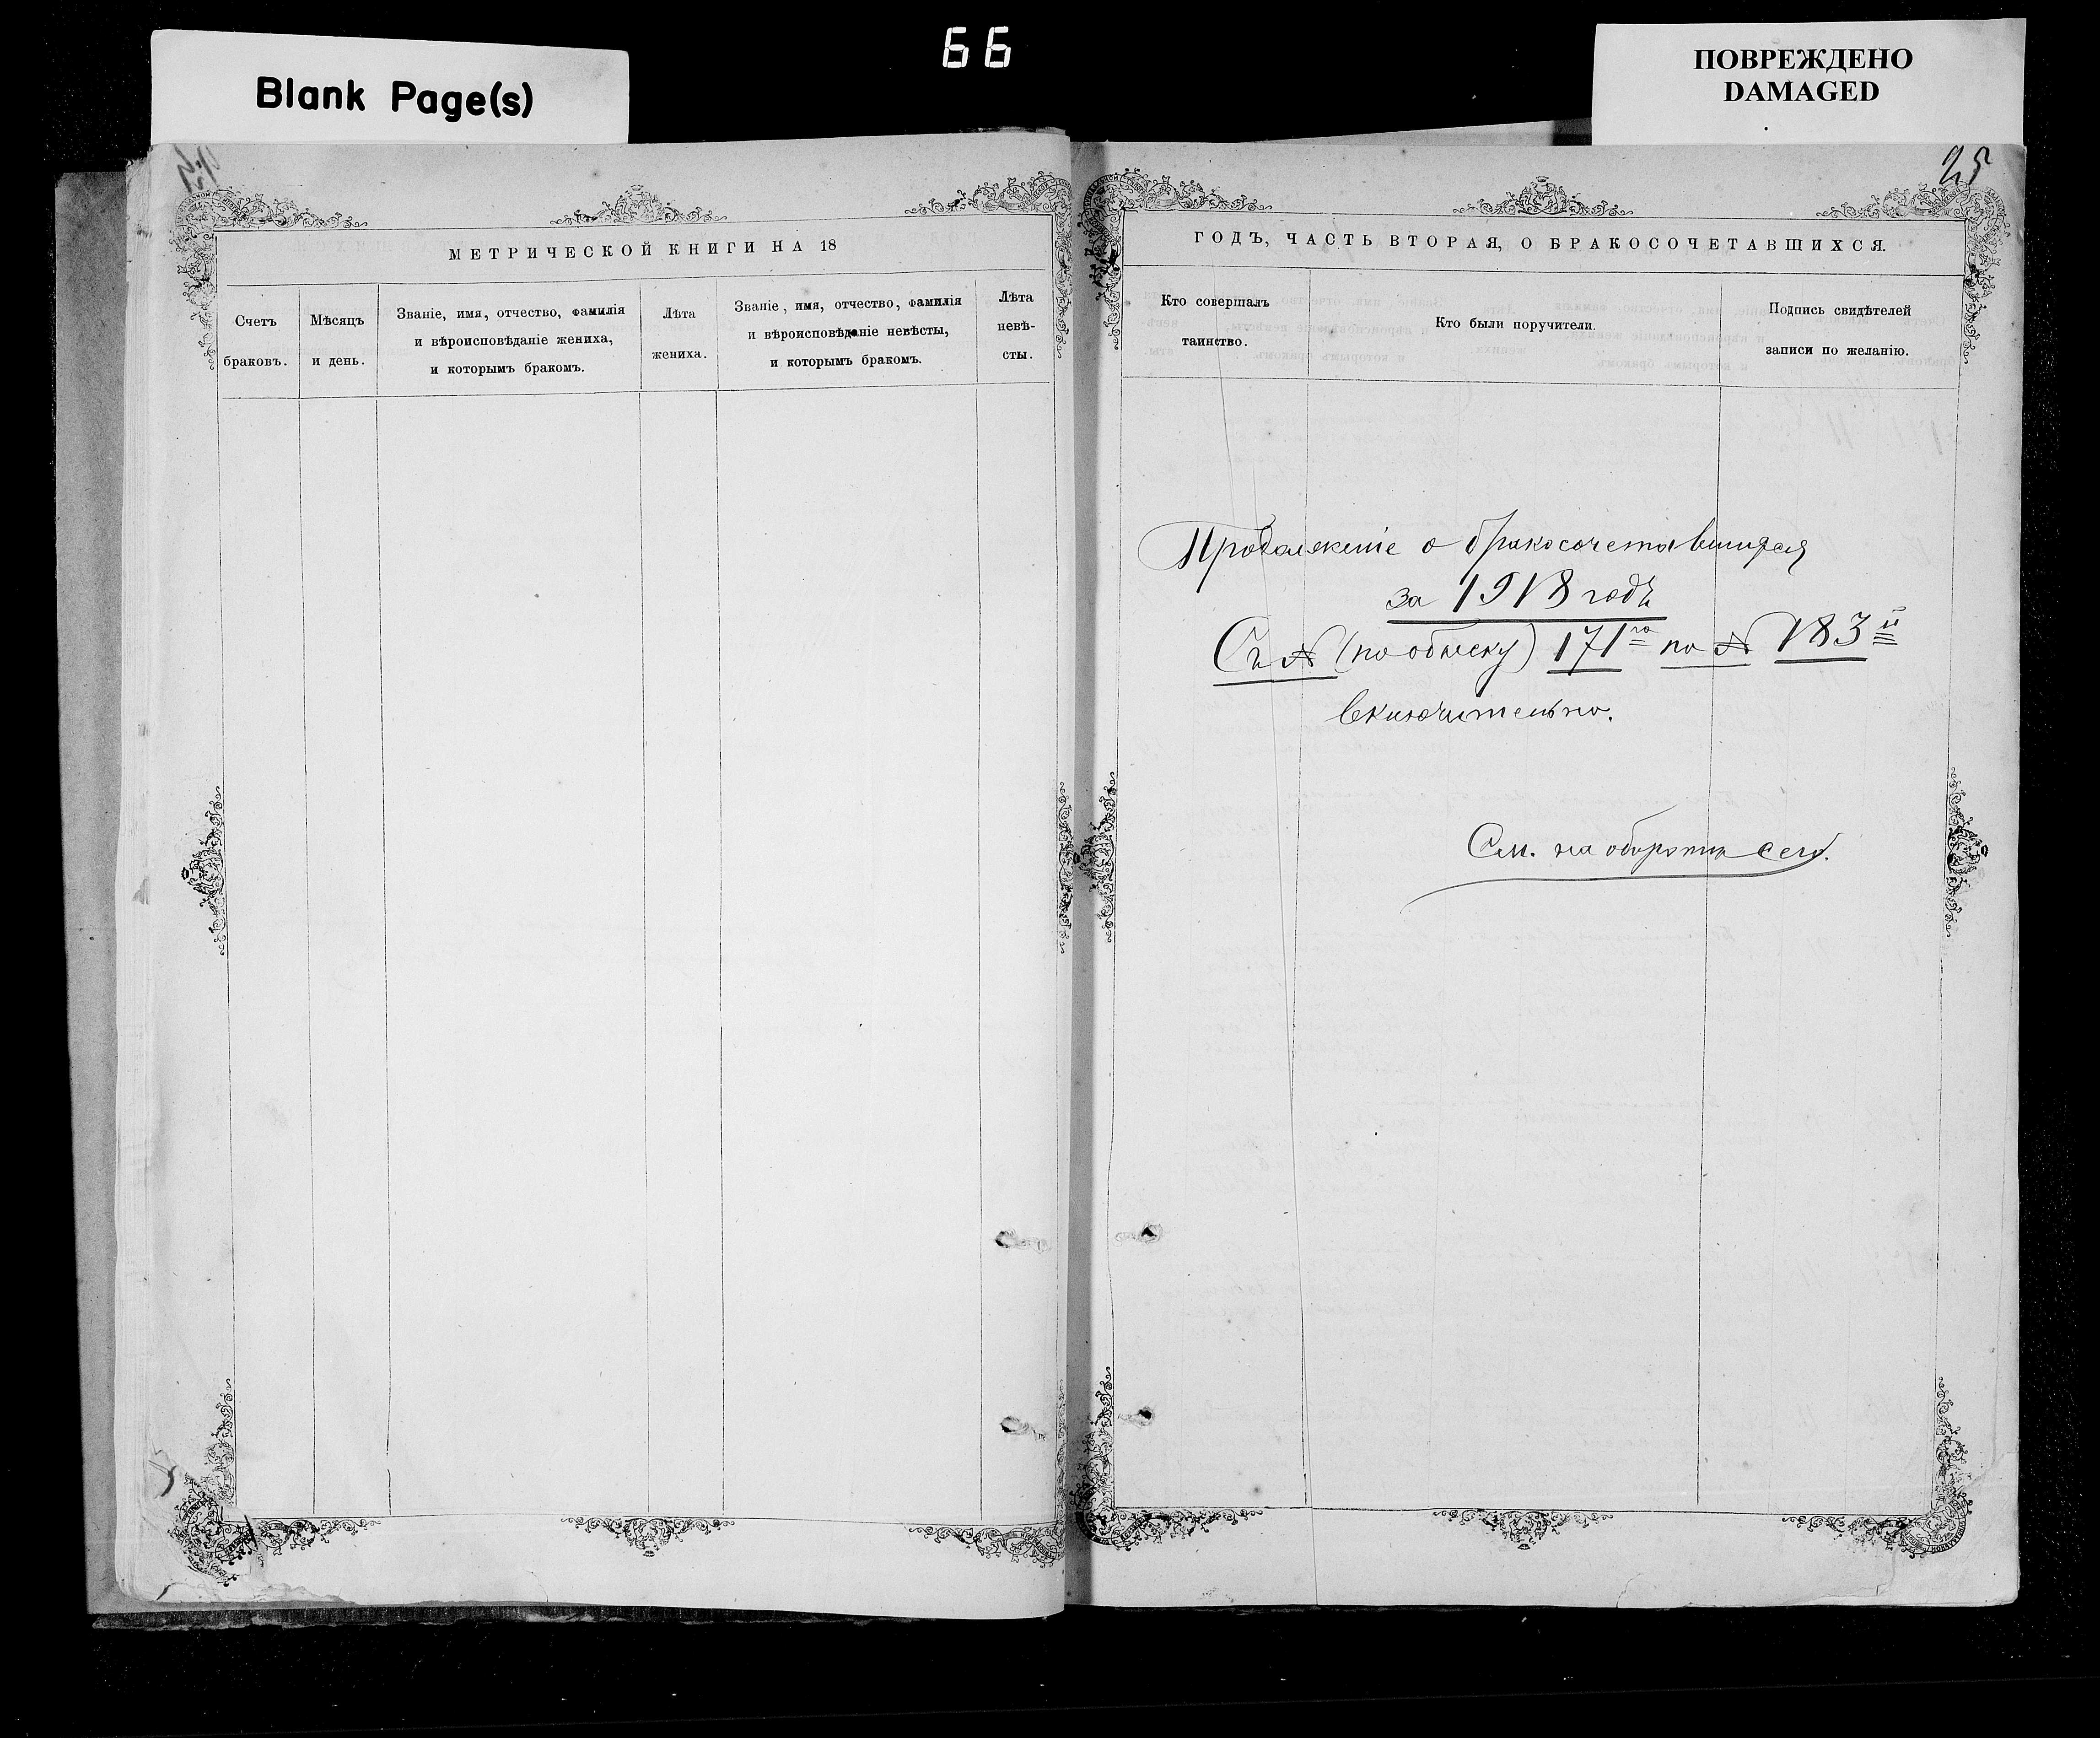 66
Blank Page(s)
ПОВРЕЖДЕНО
DAMAGED
25
МЕТРИЧЕСКОЙ КНИГИ НА 18
Счетъ
браковъ.
Мѣсяцъ
и день.
Званіе, имя, отчество, фамилія
и вѣроисповѣданіе жениха,
и которымъ бракомъ.
Лѣта
жениха.
Званіе, имя, отчество, фамилія
и вѣроисповѣданіе невѣсты,
и которымъ бракомъ.
Лѣта
невѣ-
сты.
ГОДЪ, ЧАСТЬ ВТОРАЯ, О БРАКОСОЧЕТАВШИХСЯ.
Кто совершалъ
таинство.
Кто были поручители.
Подпись свидѣтелей
записи по желанію.
Продолженіе о бракосочетавшихся
за 1918 годъ
Съ № (по обыску) 171го по № 183й
включительно.
См. на оборотѣ сего.